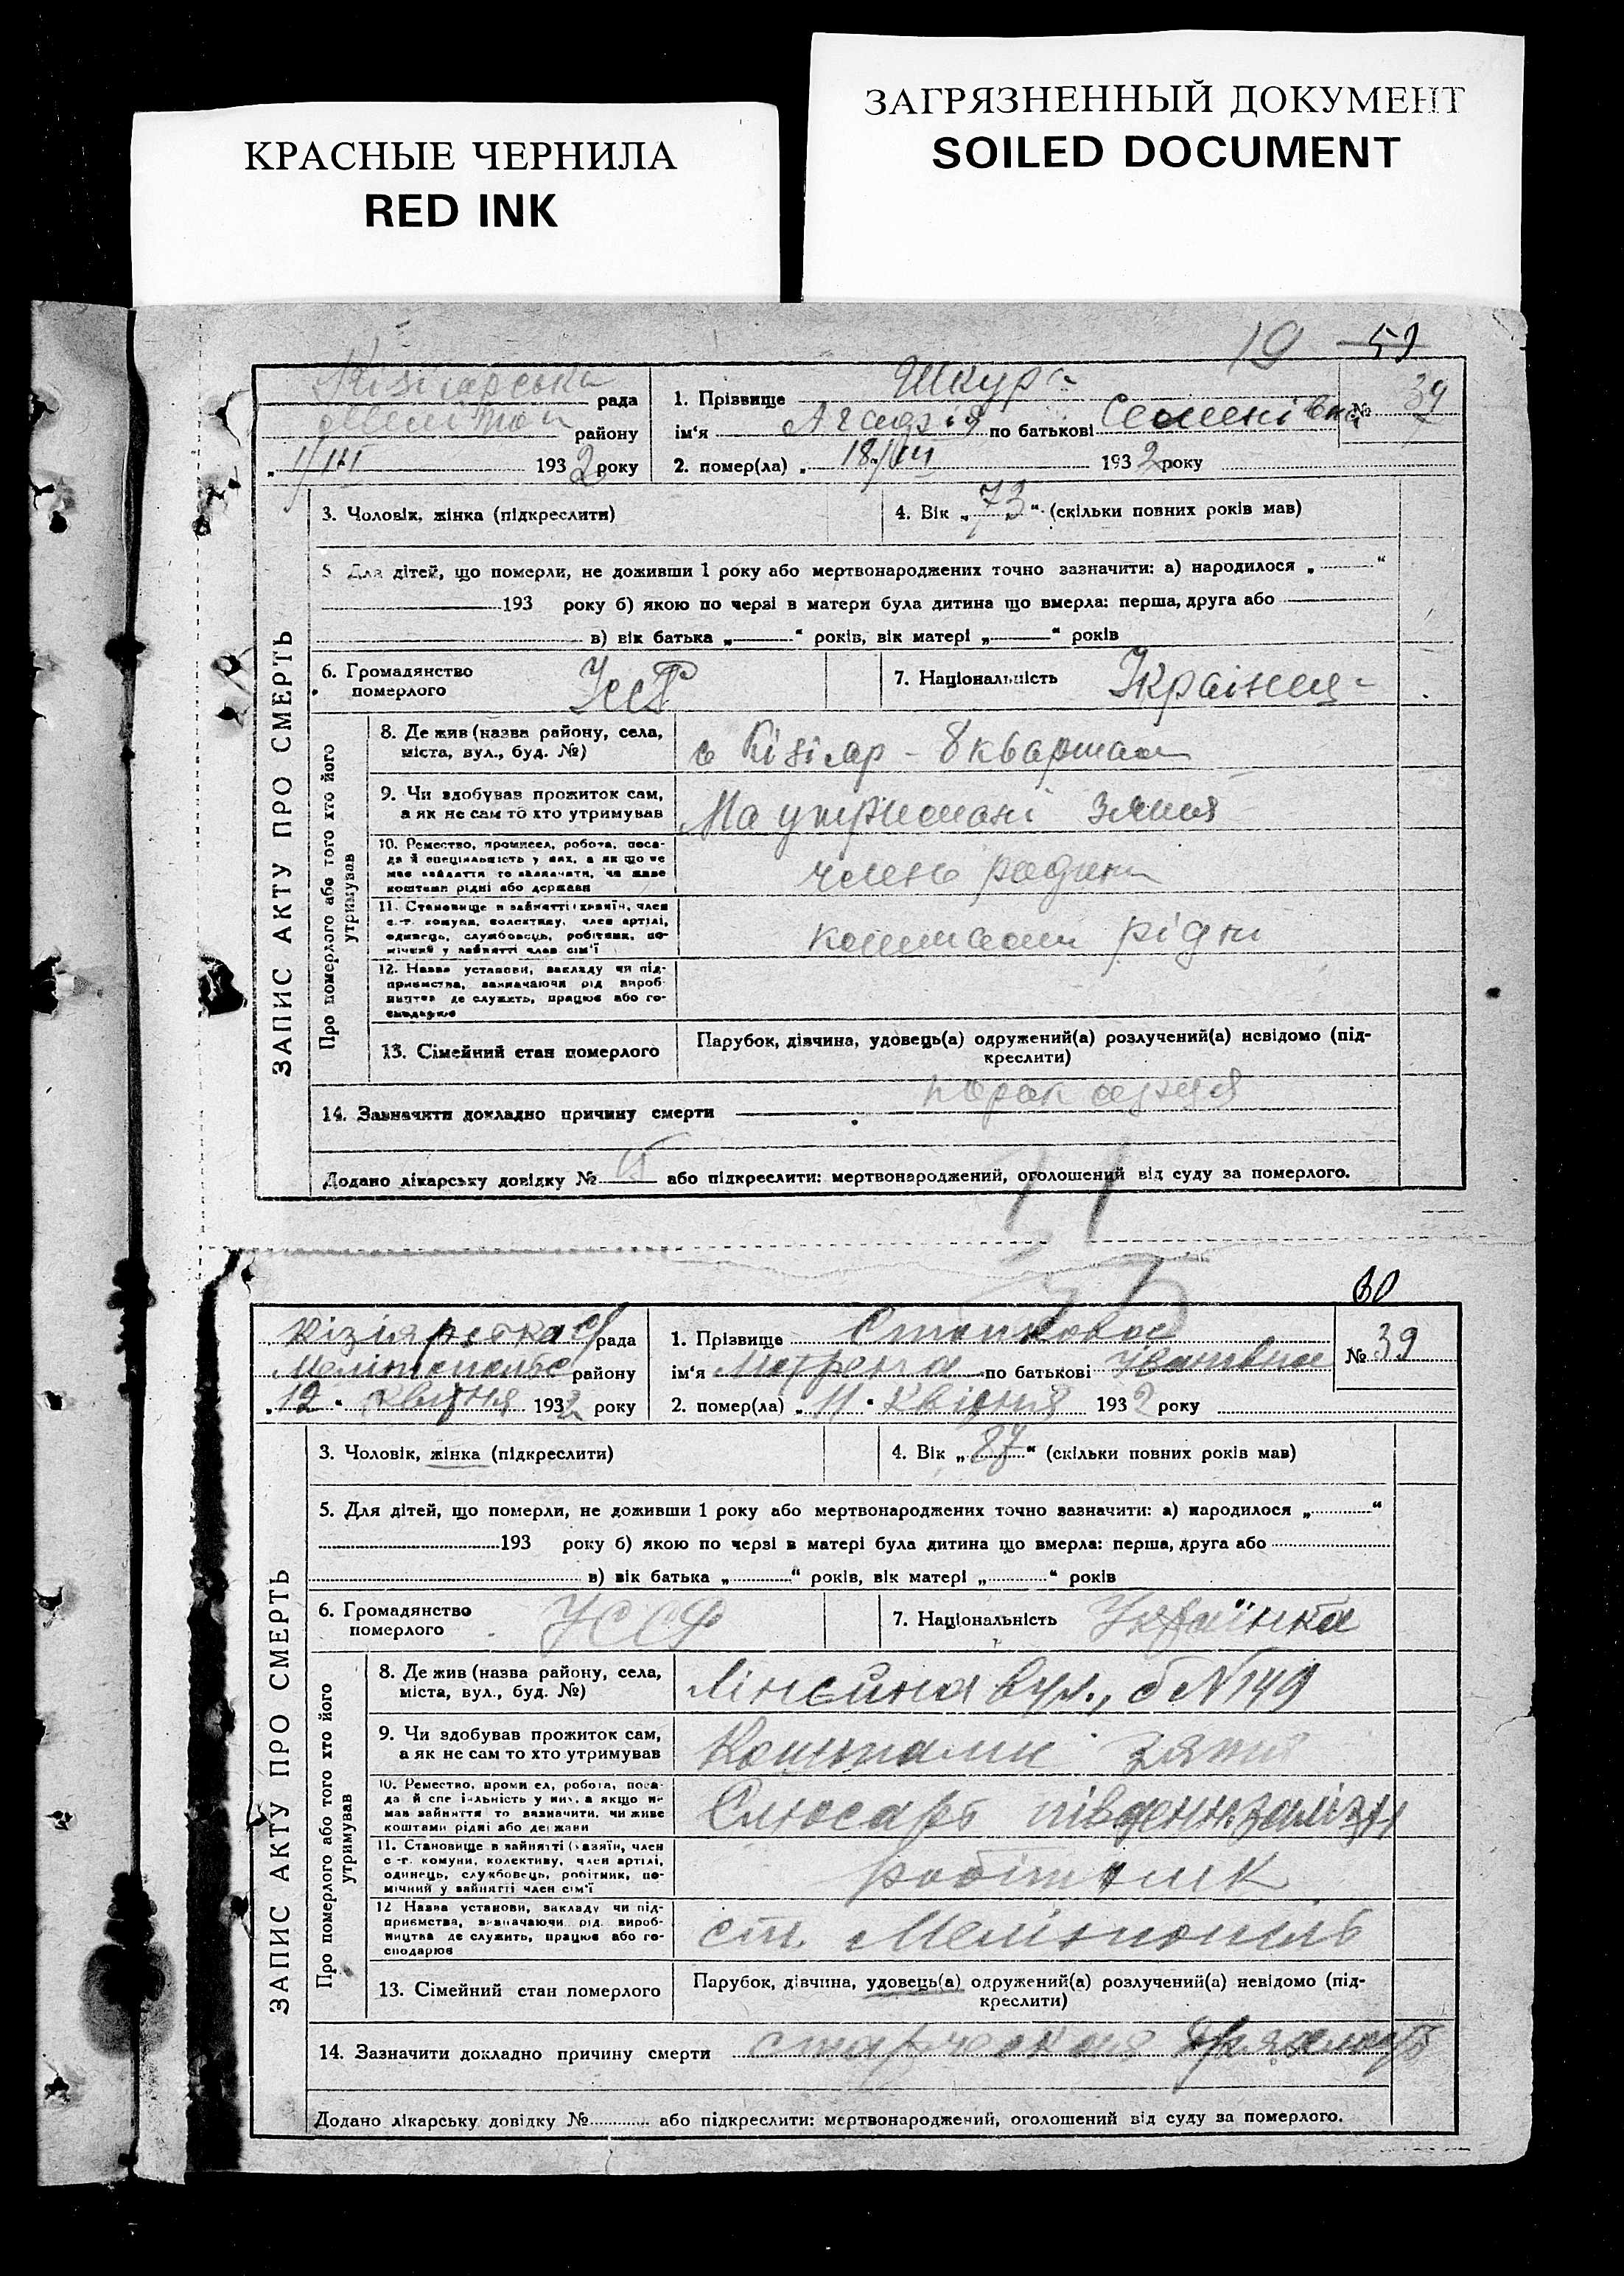 КРАСНЫЕ ЧЕРНИЛА
RED INK
ЗАГРЯЗНЕННЫЙ ДОКУМЕНТ
SOILED DOCUMENT
19 59
ЗАПИС АКТУ ПРО СМЕРТЬ
Кізіярська рада
району
193 2 року
1. Прізвище Шкура № 39
ім'я по батькові Семенівна
2. помер(ла) „ 18/III 193 2 року
3. Чоловік, жінка (підкреслити)
4. Вік „ 73 “ (скільки повних років мав)
5. Для дітей, що померли, не доживши 1 року або мертвонароджених точно зазначити: а) народилося „ “
193 року б) якою по черзі в матери була дитина що вмерла: перша, друга або
в) вік батька „ “ років, вік матері „ “ років
6. Громадянство
померлого
7. Національність
Про померлого або того хто його
утримував
8. Де жив (назва району, села,
міста, вул., буд. №)
с Кізіяр - 8 квартал
9. Чи здобував прожиток сам,
а як не сам то хто утримував
На утриманні зятя
10. Ремество, промисел, робота, поса-
да й спеціяльність у них, а як що не
мав зайняття то зазначити, чи живе
коштами рідні або держави
член родини
11. Становище в зайнятті (хазяїн, член
с.-г. комуни, колективу, член артілі,
одинець, службовець, робітник, по-
мічний у зайнятті член сім'ї
коштами рідни
12. Назва установи, закладу чи під-
приємства, зазначаючи рід вироб-
ництва де служить, працює або го-
сподарює
13. Сімейний стан померлого
Парубок, дівчина, удовець(а) одружений(а) розлучений(а) невідомо (під-
креслити)
14. Зазначити докладно причину смерти
Додано лікарську довідку № або підкреслити: мертвонароджений, оголошений від суду за померлого.
60
ЗАПИС АКТУ ПРО СМЕРТЬ
рада
району
„ 12 “ квітня 1932 року
1. Прізвище № 39
ім'я Мотрена по батькові Іванівна
2. помер(ла) „ 11 “ квітня 193 2 року
3. Чоловік, жінка (підкреслити)
4. Вік „ 87 “ (скільки повних років мав)
5. Для дітей, що померли, не доживши 1 року або мертвонароджених точно зазначити: а) народилося „ “
193 року б) якою по черзі в матері була дитина що вмерла: перша, друга або
в) вік батька „ “ років, вік матері „ “ років
6. Громадянство
померлого
УССР
7. Національність Українка
Про померлого або того хто його
утримував
8. Де жив (назва району, села,
міста, вул., буд. №)
Лінейна вул., б №149
9. Чи здобував прожиток сам,
а як не сам то хто утримував
Коштами зятя
10. Ремество, промисел, робота, поса-
да й спеціяльність у них, а якщо не
мав зайняття то зазначити, чи живе
коштами рідні або держави
Слюсарь південн. залізн
11. Становище в зайнятті (хазяїн, член
с.-г. комуни, колективу, член артілі,
одинець, службовець, робітник, по-
мічний у зайнятті член сім'ї
робітник
12. Назва установи, закладу чи під-
приємства, зазначаючи рід вироб-
ництва де служить, працює або го-
сподарює
ст. Мелітополь
13. Сімейний стан померлого
Парубок, дівчина, удовець(а) одружений(а) розлучений(а) невідомо (під-
креслити)
14. Зазначити докладно причину смерти старческая дряхлость
Додано лікарську довідку № або підкреслити: мертвонароджений, оголошений від суду за померлого.